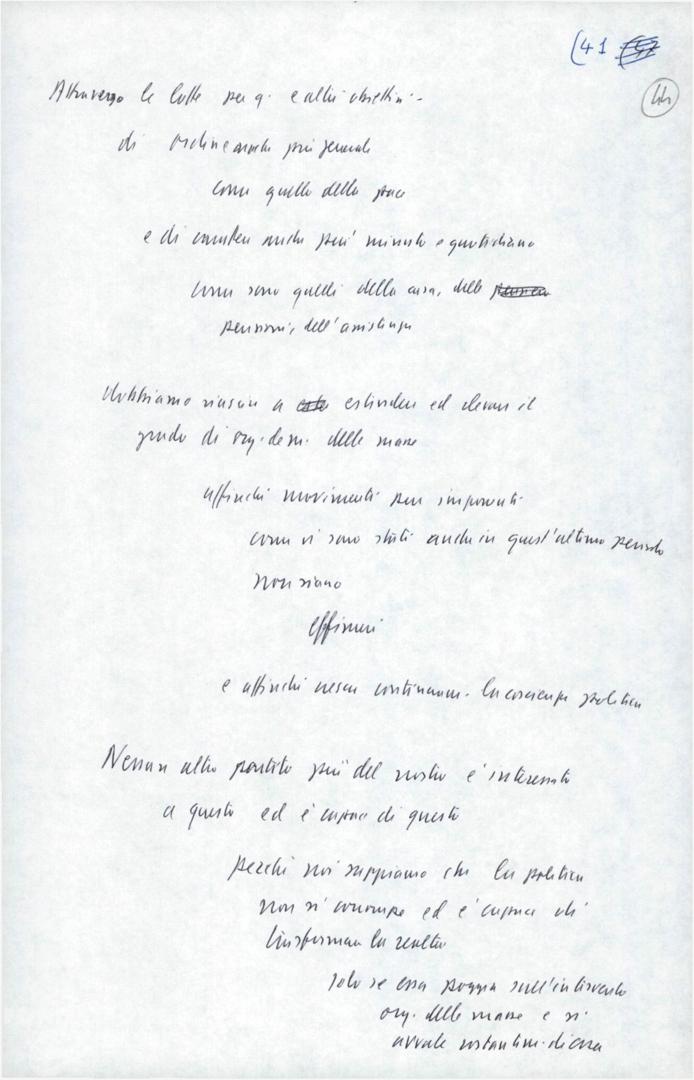 (41
44
Attraverso le lotte per q. e altri obiettivi -
di ordine anche più generale
come quello della pace
e di carattere anche più minuto e quotidiano
come sono quelli della casa, delle
pensioni, dell'assistenza
dobbiamo riuscire a estendere ed elevare il
grado di org. dem. delle masse
affinché movimenti pur imponenti
come vi sono stati anche in quest'ultimo periodo
non siano
effimeri
e affinché cresca continuam. la coscienza politica
Nessun altro partito più del nostro è interessato
a questo ed è capace di questo
perché noi sappiamo che la politica
non si corrompe ed è capace di
trasformare la realtà
solo se essa poggia sull'intervento
org. delle masse e si
avvale costantem. di esse